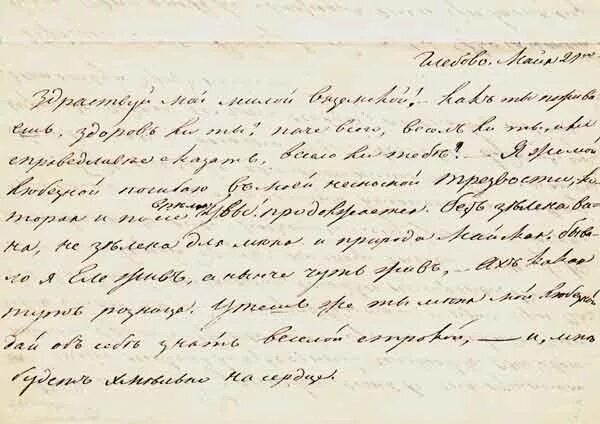 Глебово. Майя 21го
Здраствуй мой милой Вяземской! – какъ ты пожива-
ешь, здоровъ ли ты? паче всего, веселъ ли ты, или
справедливѣе сказать, весело ли тебѣ? – Я же мой
любезной погибаю въ моей несносной трезвости, ко-
торая и после Ермка увы! продолжается. безъ зелена ви-
на, не зелена для меня и природа Майска. быва-
ло я Еле живъ, а нынче чуть живъ, – Ахъ какая
тутъ розница. Утешь же ты меня мой Любезной
дай объ себѣ знать веселой строкой, – и, мнѣ
будетъ хмѣльно на сердце.